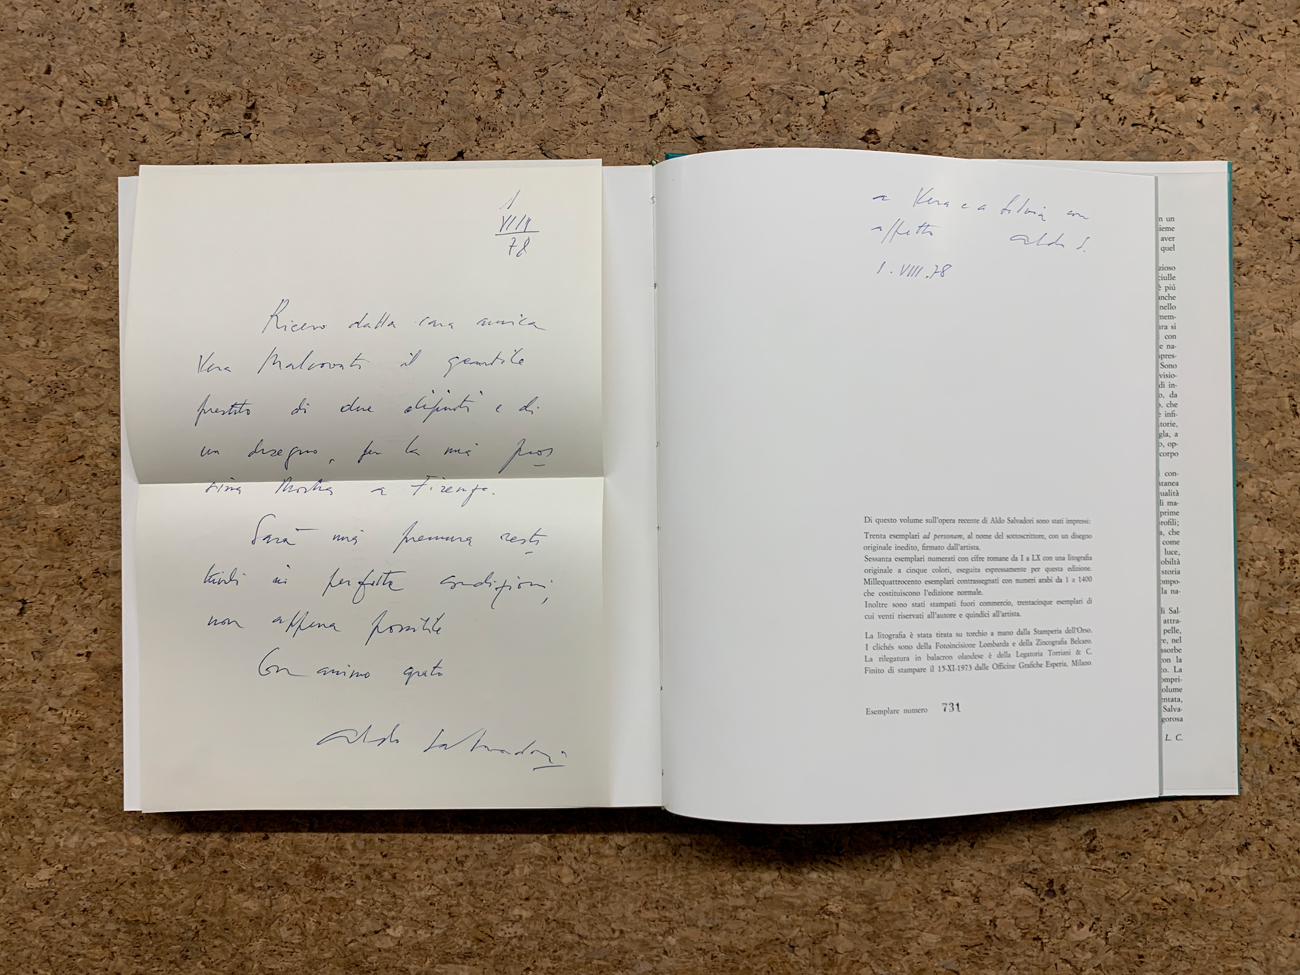 1
VIII
78
Ricevo dalla cara amica
Vera Malcovati il gentile
prestito di due dipinti e di
un disegno, per la mia pros
sima Mostra a Firenze.
Sarà mia premura resti
tuirli in perfette condizioni,
non appena possibile
Con animo grato
Aldo Salvadori
a Vera e a Silvia con
affetto Aldo S.
1.VIII.78
Di questo volume sull'opera recente di Aldo Salvadori sono stati impressi:
Trenta esemplari ad personam, al nome del sottoscrittore, con un disegno
originale inedito, firmato dall'artista.
Sessanta esemplari numerati con cifre romane da I a LX con una litografia
originale a cinque colori, eseguita espressamente per questa edizione.
Millequattrocento esemplari contrassegnati con numeri arabi da 1 a 1400
che costituiscono l'edizione normale.
Inoltre sono stati stampati fuori commercio, trentacinque esemplari di
cui venti riservati all'autore e quindici all'artista.
La litografia è stata tirata su torchio a mano dalla Stamperia dell'Orso.
I clichés sono della Fotoincisione Lombarda e della Zincografia Belcaro.
La rilegatura in balacron olandese è della Legatoria Torriani & C.
Finito di stampare il 15-XI-1973 dalle Officine Grafiche Esperia, Milano
Esemplare numero 731
n un
sieme
aver
quel
zioso
ciulle
è più
anche
nello
nem-
ra si
con
e na-
spres-
Sono
visio-
di in-
o, da
o, che
e infi-
torie,
gla, a
o, op-
corpo
con-
stanea
ualità
li ma-
prime
rofili;
a, che
come
luce,
obiltà
storia
ompo-
la na-
di Sal-
attra-
pelle,
re, nel
ssorbe
con la
o. La
mpri-
olume
entata,
Salva-
gorosa
L. C.